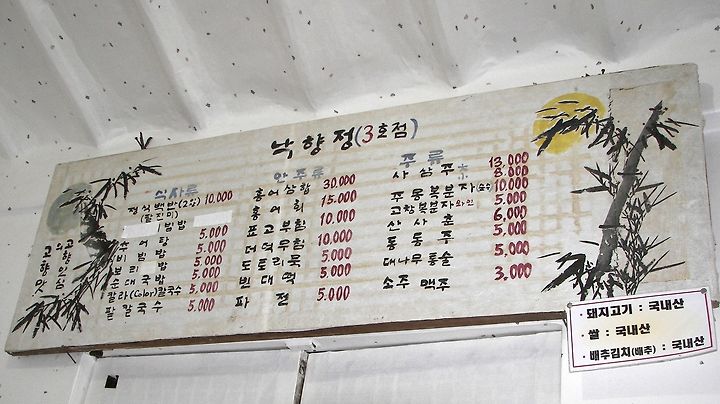 낙향정(3호점)
식사류
정식백반(2상) 10,000
추어탕 5.000
비빔밥 5.000
보리밥 5.000
순대국밥 5.000
칼라(Color)칼국수 5.000
팥칼국수 5.000
안주류
홍어삼합 30.000
홍어회 15.000
표고부침 10.000
더덕무침 10.000
도토리묵 5.000
빈대떡 5.000
파전 5.000
주류
사삼주 大 13,000
小 8.000
주몽복분자 10,000
고창복분자와인
산사춘 6,000
동동주 5.000
대나무통술
소주 맥주 3.000
고향의
고향인심
고향맛
· 돼지고기 : 국내산
· 쌀 : 국내산
· 배추김치(배추) : 국내산